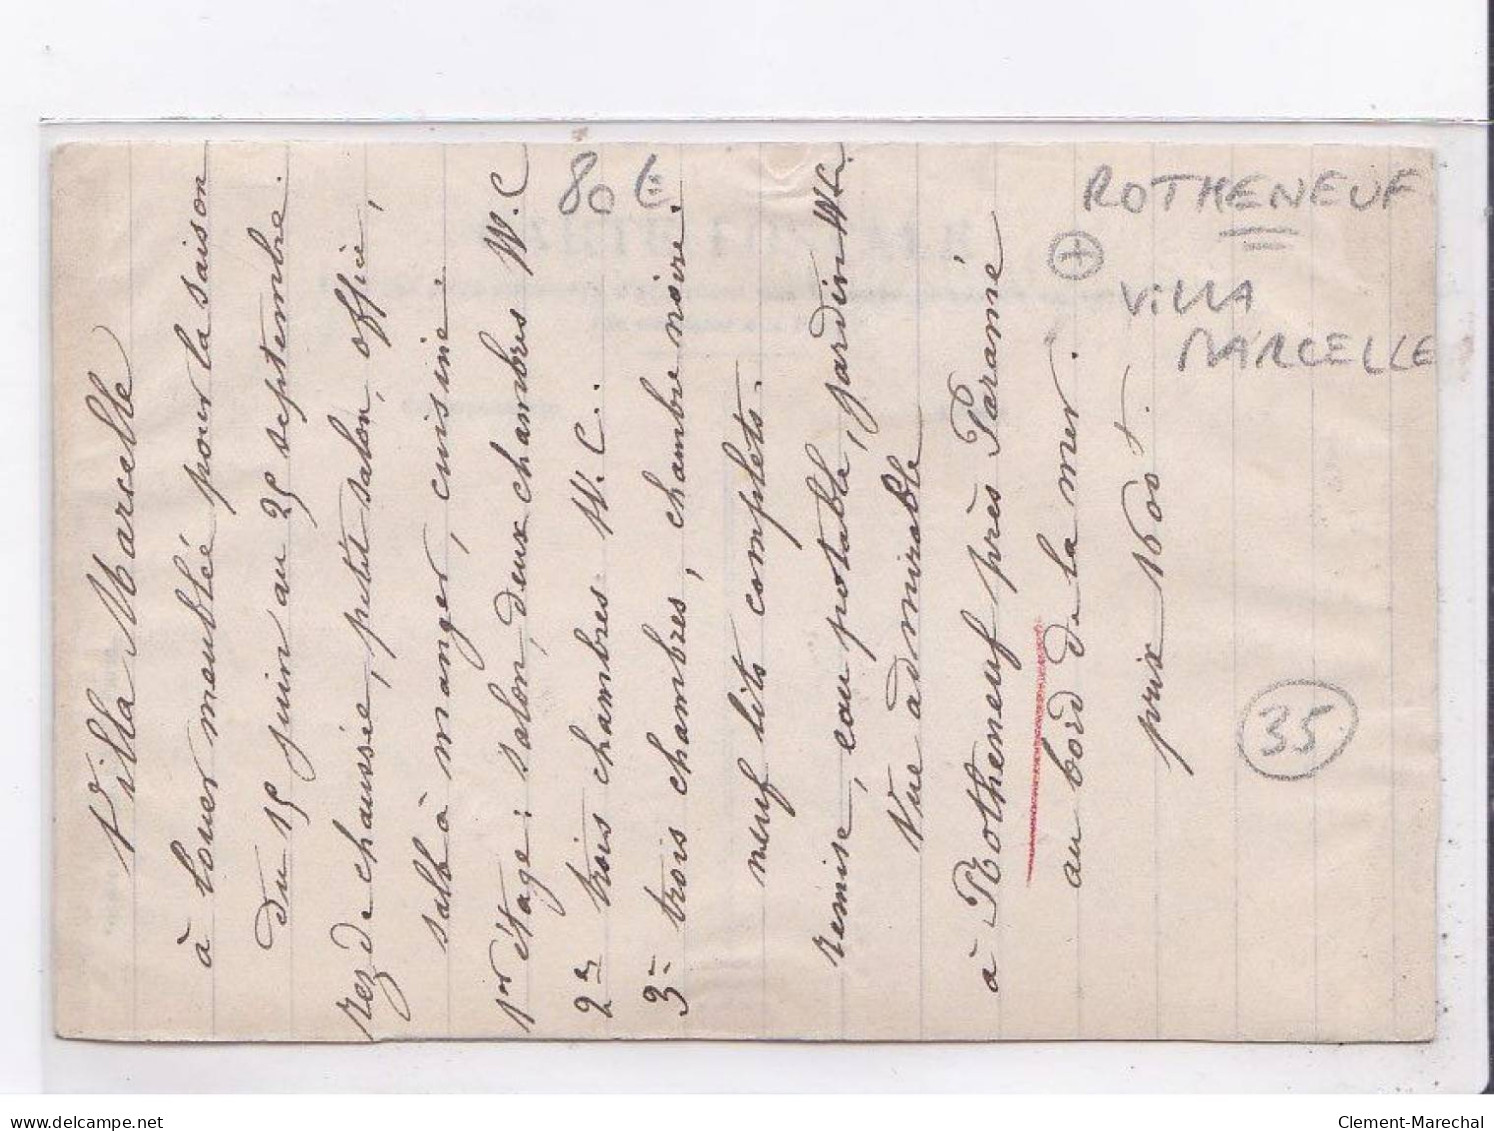 Villa Marcelle
à louer meublée pour la saison
du 15 juin au 25 septembre.
rez de chaussée, petit salon, office,
salle à manger, cuisine.
1er étage: salon, deux chambres W.C
2me trois chambres W.C.
3me trois chambres, chambre noire.
neuf lits complets.
remise, eau potable, jardin W.C.
Vue admirable
à Rotheneuf près Paramé
au bord de la mer.
prix 1600f.
80 €
ROTHENEUF
+
VILLA
MARCELLE
35
delcampe.net
Clement-Marechal